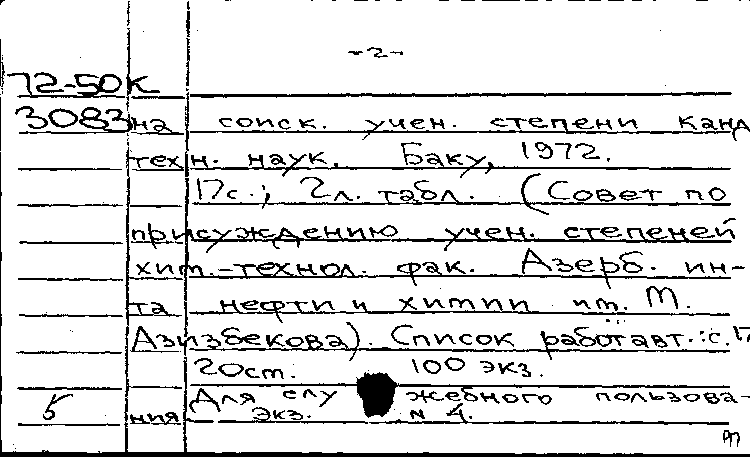 -2-
72-50К
3083 на соиск. учен. степени канд
техн. наук. Баку, 1972.
17с.; 2л. табл. (Совет по
присуждению учен. степеней
хим.-технол. фак. Азерб. ин-
та нефти и химии им. М.
Азизбекова). Список работ авт.: с.17
20см. 100 экз.
Для служебного пользова-
5 ния Экз. № 4.